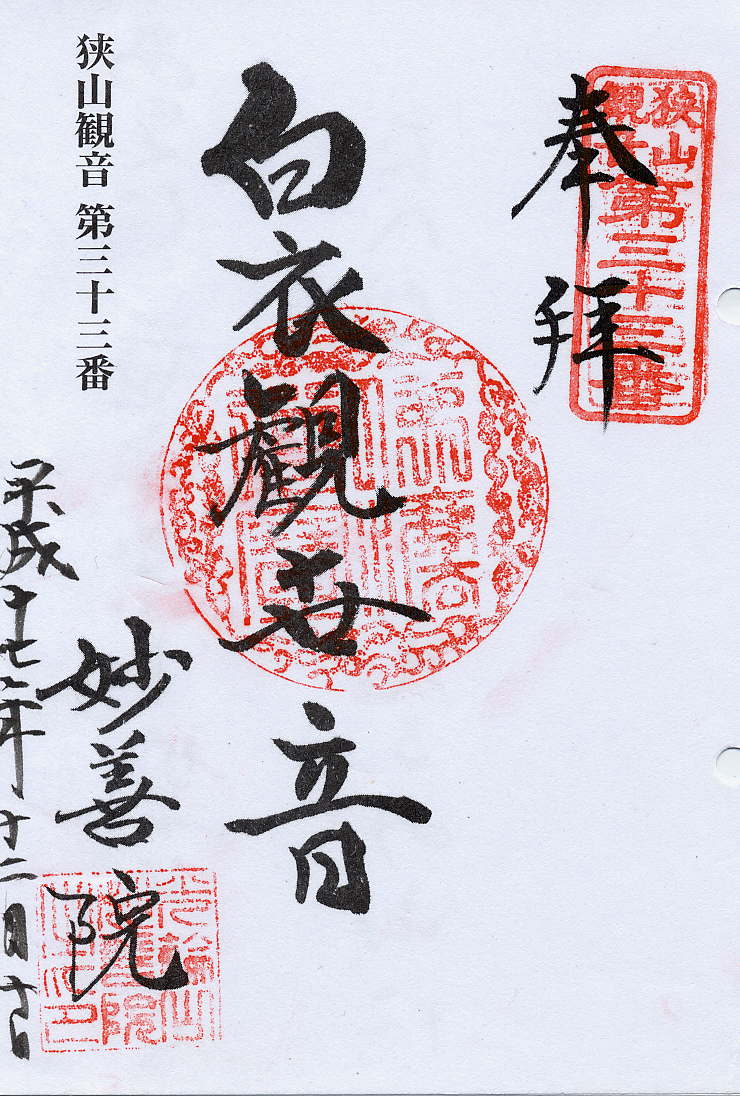 奉拝
狭山
観音
第三十三番
白衣観世音
狭山観音 第三十三番
妙善院
平成十七年十二月十日